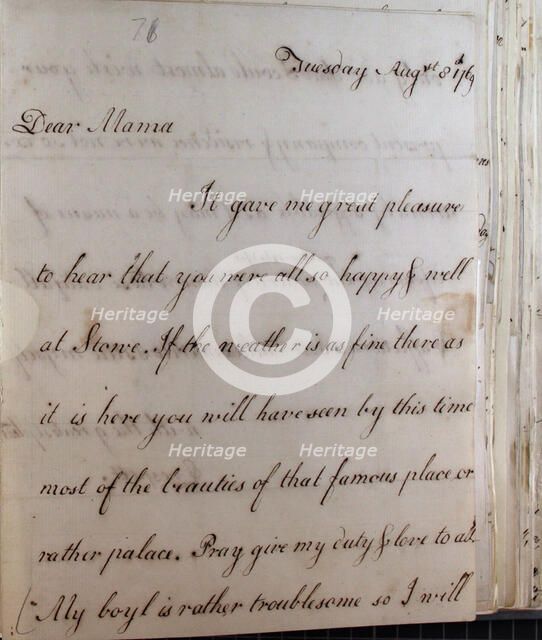 76
Tuesday Augst 8th 1769
Dear Mama
It gave me great pleasure
to hear that you were all so happy & well
at Stowe. If the weather is as fine there as
it is here you will have seen by this time
most of the beauties of that famous place or
rather palace. Pray give my duty & love to all
My boyl is rather troublesome so I will
Heritage
Heritage
Heritage
Heritage
Heritage
Heritage
Heritage
Heritage